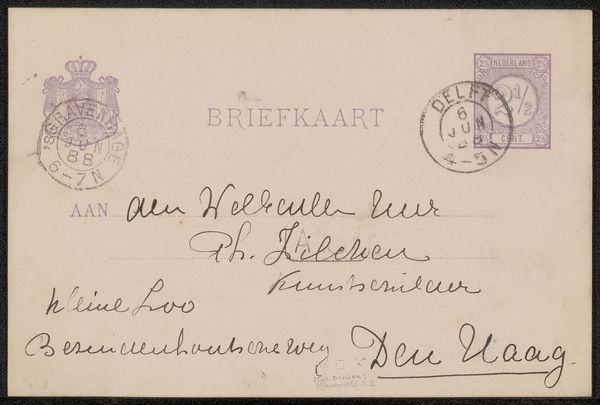 NEDERLAND
2½ 2½
2½
CENT.
DELFT
6
JUN
88
4-5N
'S GRAVENHAGE
6
JUN
88
6-7N
BRIEFKAART
AAN den WelEdelen Heer
A
Ph. Zilcken
Kunstschilder
Kleine Loo
Bezuidenhoutscheweg Den Haag.